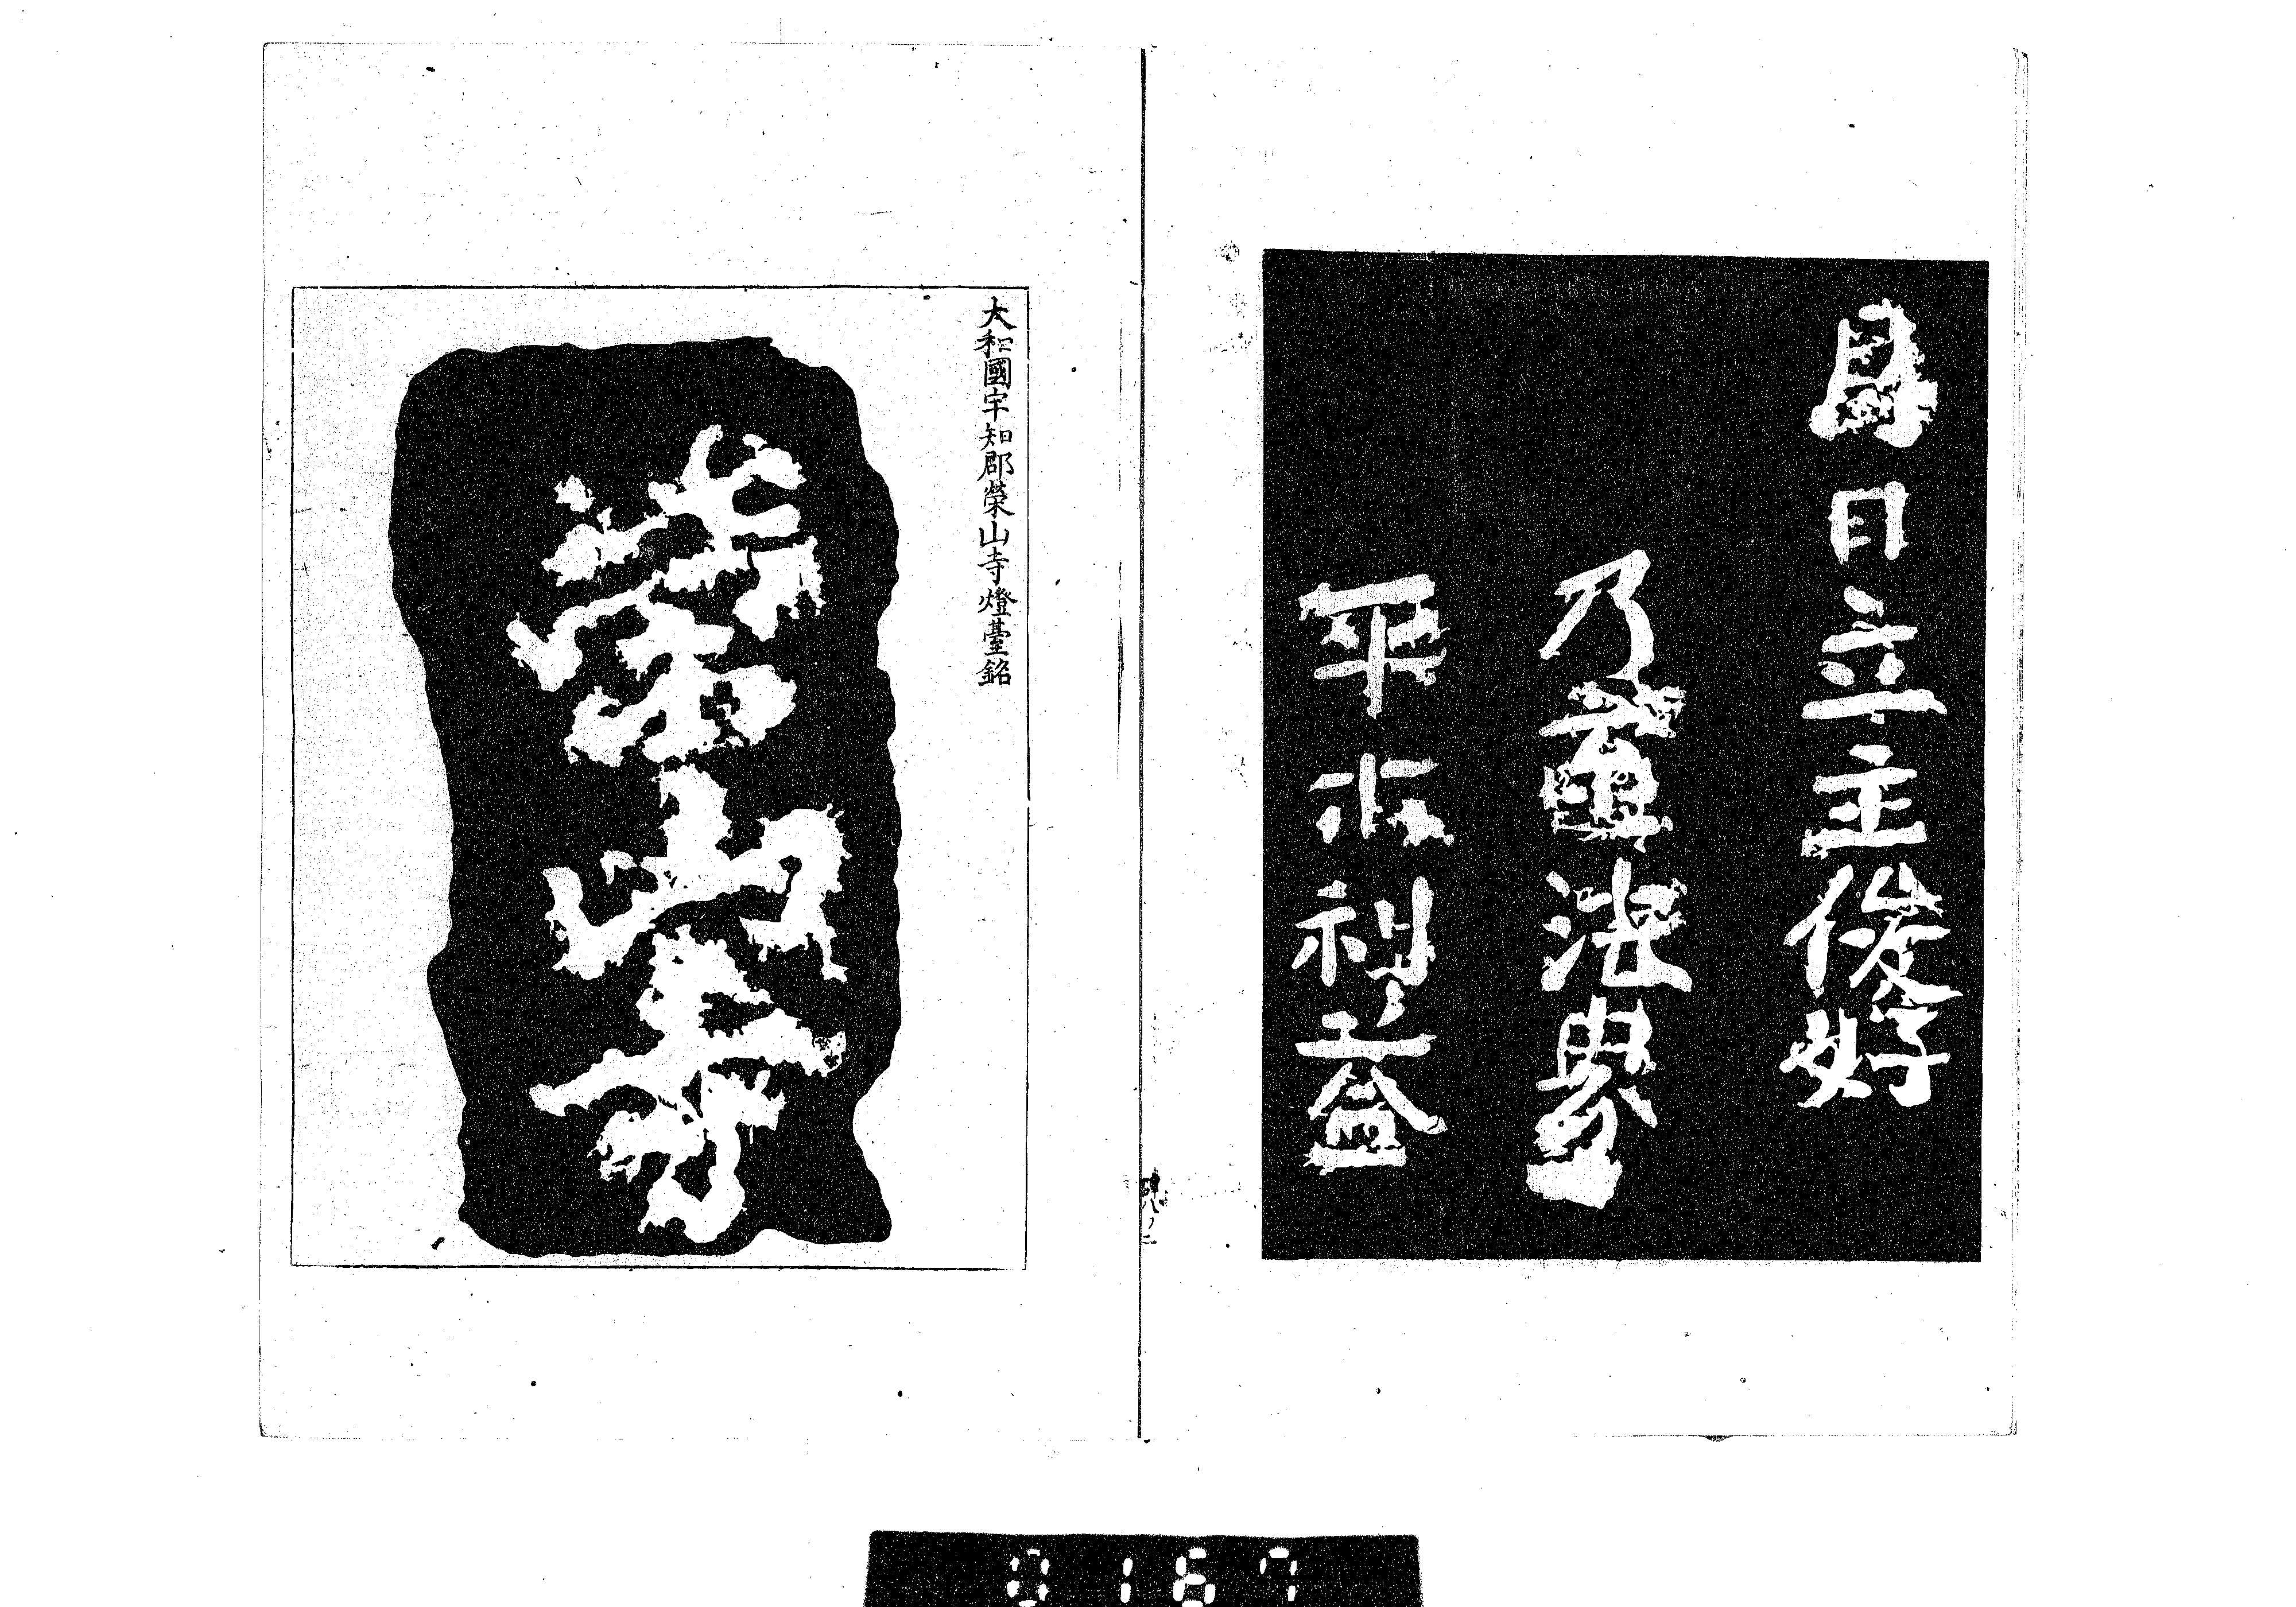 日立主俊好
乃至法界
平木利益
大和國宇知郡榮山寺燈臺銘
榮山寺
碑八ノ二
0167